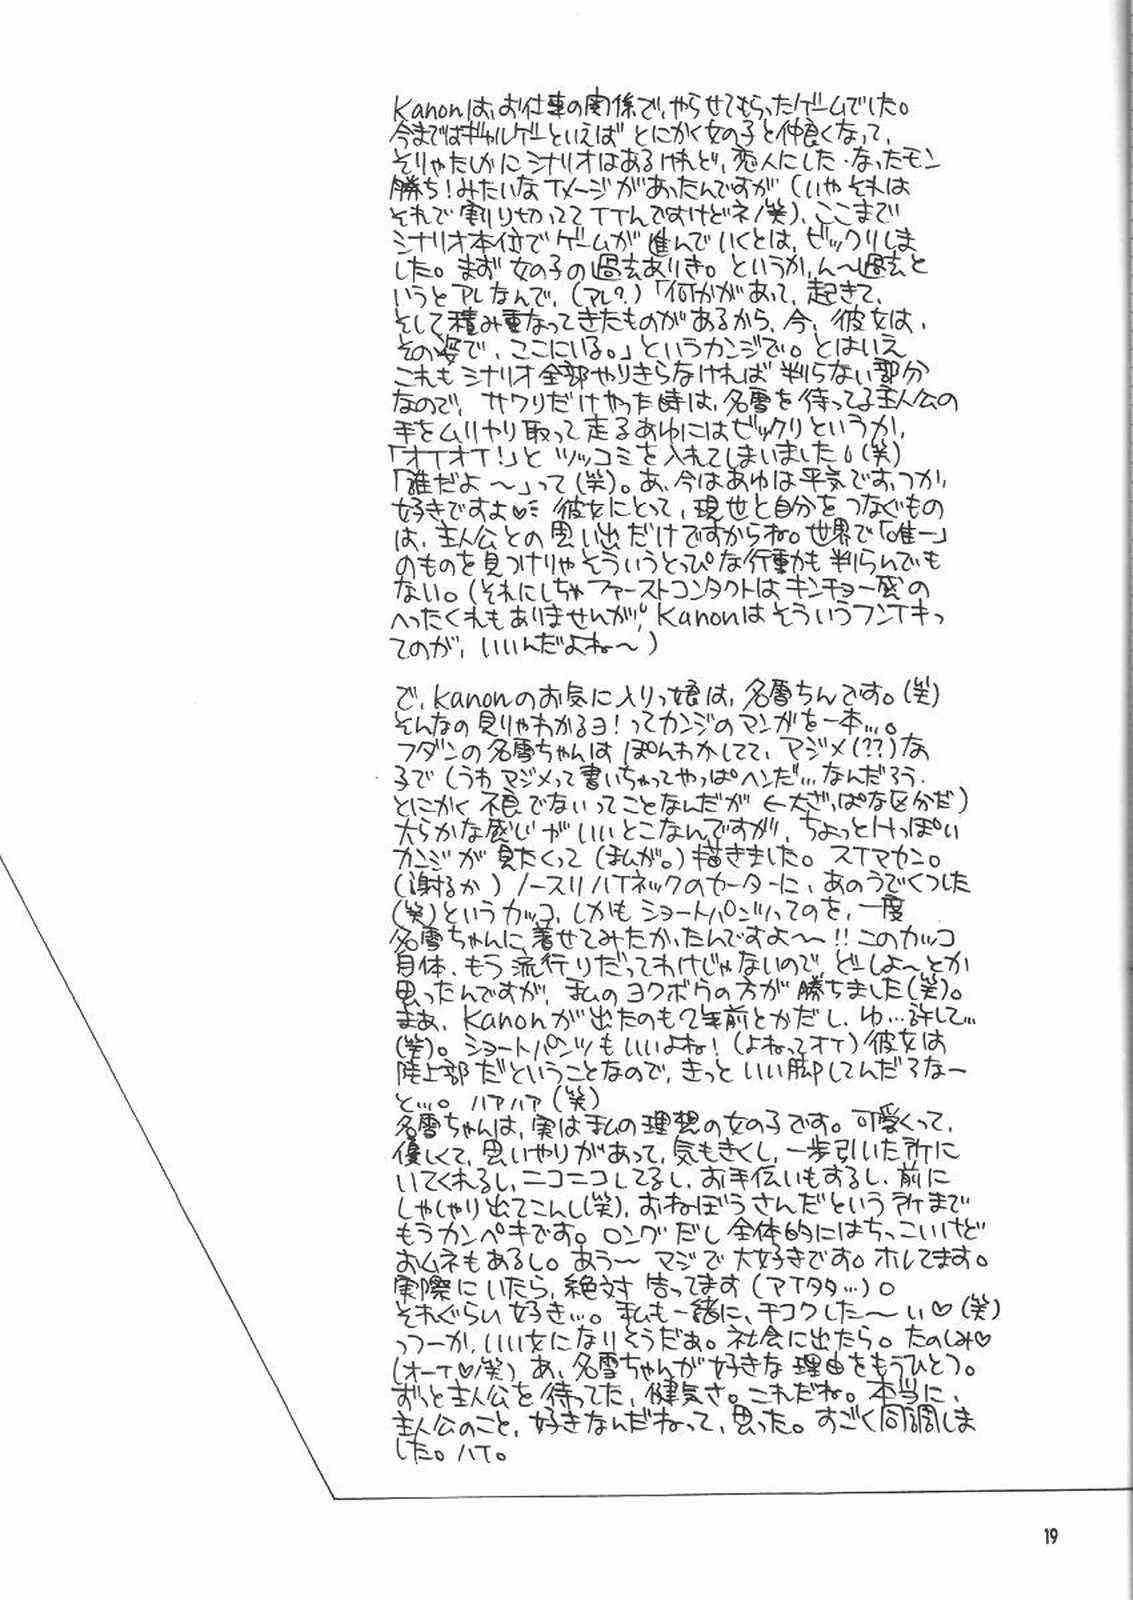 Kanonは、お仕事の関係で、やらせてもらったゲームでした。
今まではギャルゲーといえば とにかく女の子と仲良くなって、
そりゃたしかに シナリオはあるけれど、恋人にした・なったモン
勝ち！みたいなイメージがあったんですが（いや それは
それで 割り切ってて イイんですけどネ/笑）、ここまで
シナリオ本位でゲームが 進んでいくとは、ビックリしま
した。まず 女の子の過去ありき。というか、ん〜過去と
いうとアレなんで、（アレ？）「何かがあって、起きて、
そして積み重なってきたものがあるから、今、彼女は、
その姿で、ここにいる。」というカンジで。とはいえ
これも シナリオ全部やりきらなければ 判らない部分
なので、サワリだけやった時は、名雪を待ってる主人公の
手をムリヤリ取って 走るあゆにはビックリというか、
「オイオイ！」と ツッコミを入れてしまいました。（笑）
「誰だよ〜」って（笑）。あ、今はあゆは平気です、つか、
好きですよ♡ 彼女にとって、現世と自分をつなぐもの
は、主人公との思い出だけですからね。世界で「唯一」
のものを見つけりゃそういうとっぴな行動も判らんでも
ない。（それにしちゃファーストコンタクトはキンチョー感の
へったくれもありませんが。Kanonはそういうフンイキっ
てのが、いいんだよね〜）
で、Kanonのお気に入りっ娘は、名雪ちんです。（笑）
そんなの見りゃわかるヨ！ってカンジのマンガを一本…。
フダンの名雪ちゃんは ぽんわかしてて、マジメ（？？）な
子で（うわ マジメって書いちゃってやっぱヘンだ…なんだろう、
とにかく 不良でないってことなんだが ←大ざっぱな区分だ）
大らかな感じがいいとこなんですが、ちょっとHっぽい
カンジが見たくって（まんが。）描きました。スイマセン。
（謝るか）ノースリハイネックのセーターに、あのうでくつした
（笑）というカッコ、しかも ショートパンツってのを、一度
名雪ちゃんに、着せてみたかったんですよ〜!! このカッコ
自体、もう 流行りだってわけじゃないので、どーしよ〜とか
思ったんですが、私のヨクボウの方が 勝ちました（笑）。
まあ、Kanonが出たのも2年前とかだし、ゆ…許して…
（笑）。ショートパンツもいいよね！（よねってオイ）彼女は
陸上部だということなので、きっと いい脚してんだろなー
と…。ハアハア（笑）
名雪ちゃんは、実は私の理想の女の子です。可愛くって、
優しくて、思いやりがあって、気もきくし、一歩引いた所に
いてくれるし、ニコニコしてるし、お手伝いもするし、前に
しゃしゃり出てこんし（笑）、おねぼうさんだという所まで
もうカンペキです。ロングだし 全体的にはちっこいけど
おムネもあるし。あう〜 マジで大好きです。ホレてます。
実際にいたら、絶対 告ってます（アイタタ…）。
それぐらい 好き…。私も一緒に、チコクした〜い♡（笑）
っつーか、いい女になりそうだぁ。社会に出たら。たのしみ♡
（オーイ♡/笑）あ、名雪ちゃんが好きな 理由をもうひとつ。
ずっと主人公を待ってた、健気さ。これだね。本当に、
主人公のこと、好きなんだねって、思った。すごく同調しま
した。ハイ。
19